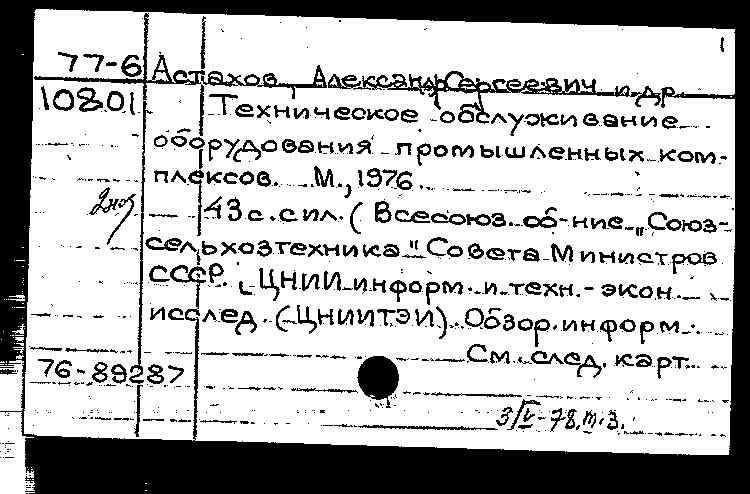 1
77-6 Астахов, Александр Сергеевич и др.
10801 Техническое обслуживание
оборудования промышленных ком-
плексов. М., 1976.
43с. с ил. (Всесоюз. об-ние "Союз-
сельхозтехника" Совета Министров
СССР. ЦНИИ информ. и техн.-экон.
исслед. (ЦНИИТЭИ). Обзор. информ.
См. след. карт.
76-89287
3/V-78. т.з.